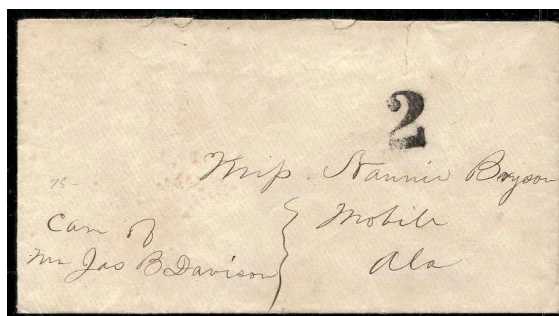 2
75-
Miss Nannie Bryson
Mobile
Ala
Care of
Mr Jas B Davison